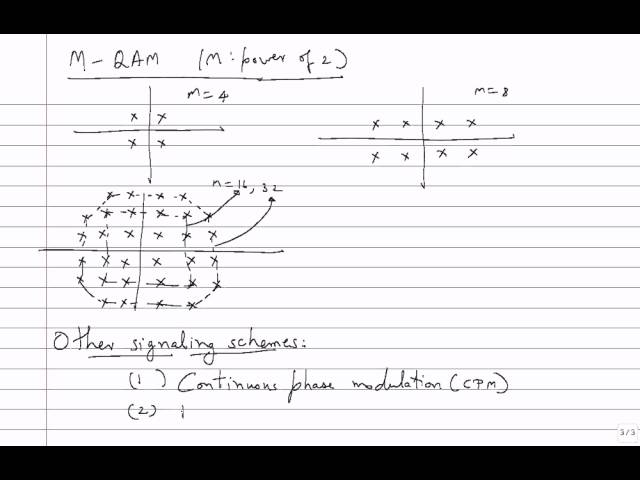 M-QAM (M: power of 2)
m=4
m=8
m=16, 32
Other signaling schemes:
(1) Continuous phase modulation (CPM)
(2)
3/3